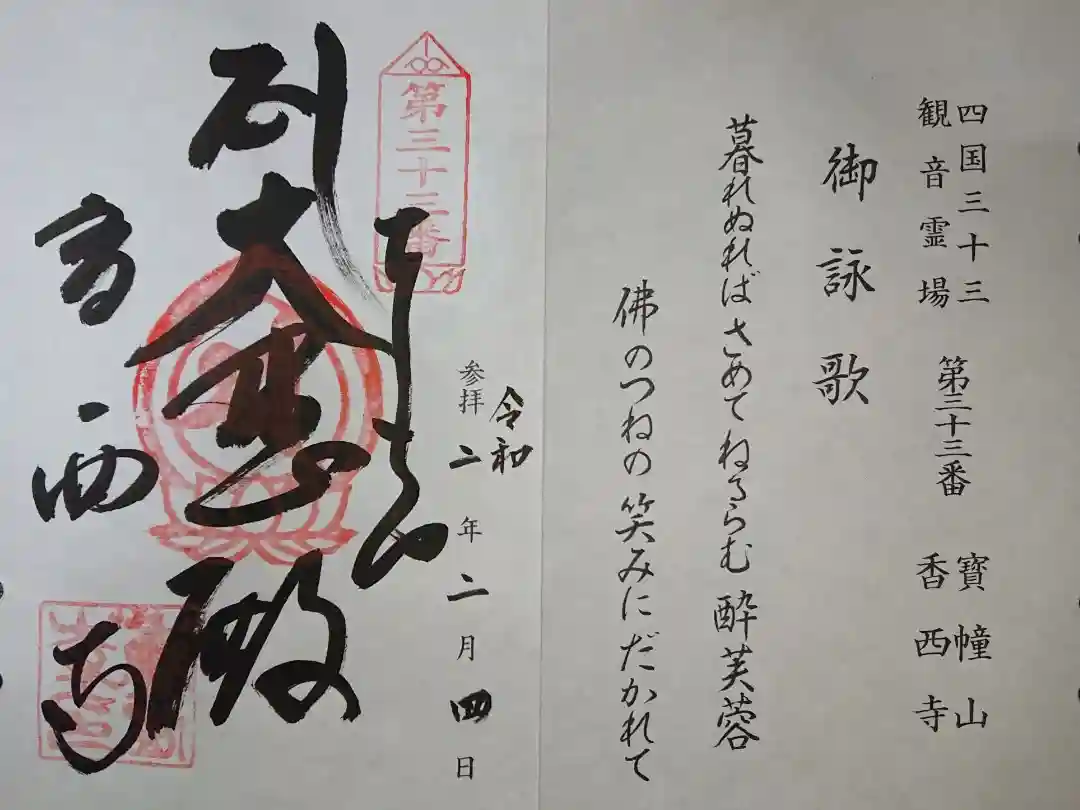 四国三十三
観音霊場
第三十三番
寶幢山
香西寺
御詠歌
暮れぬればさめてねるらむ酔芙蓉
佛のつねの笑みにだかれて
第三十三番
令和
参拝二年二月四日
大悲殿
香西寺